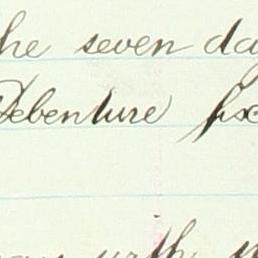 he seven da
Debenture fixe
with